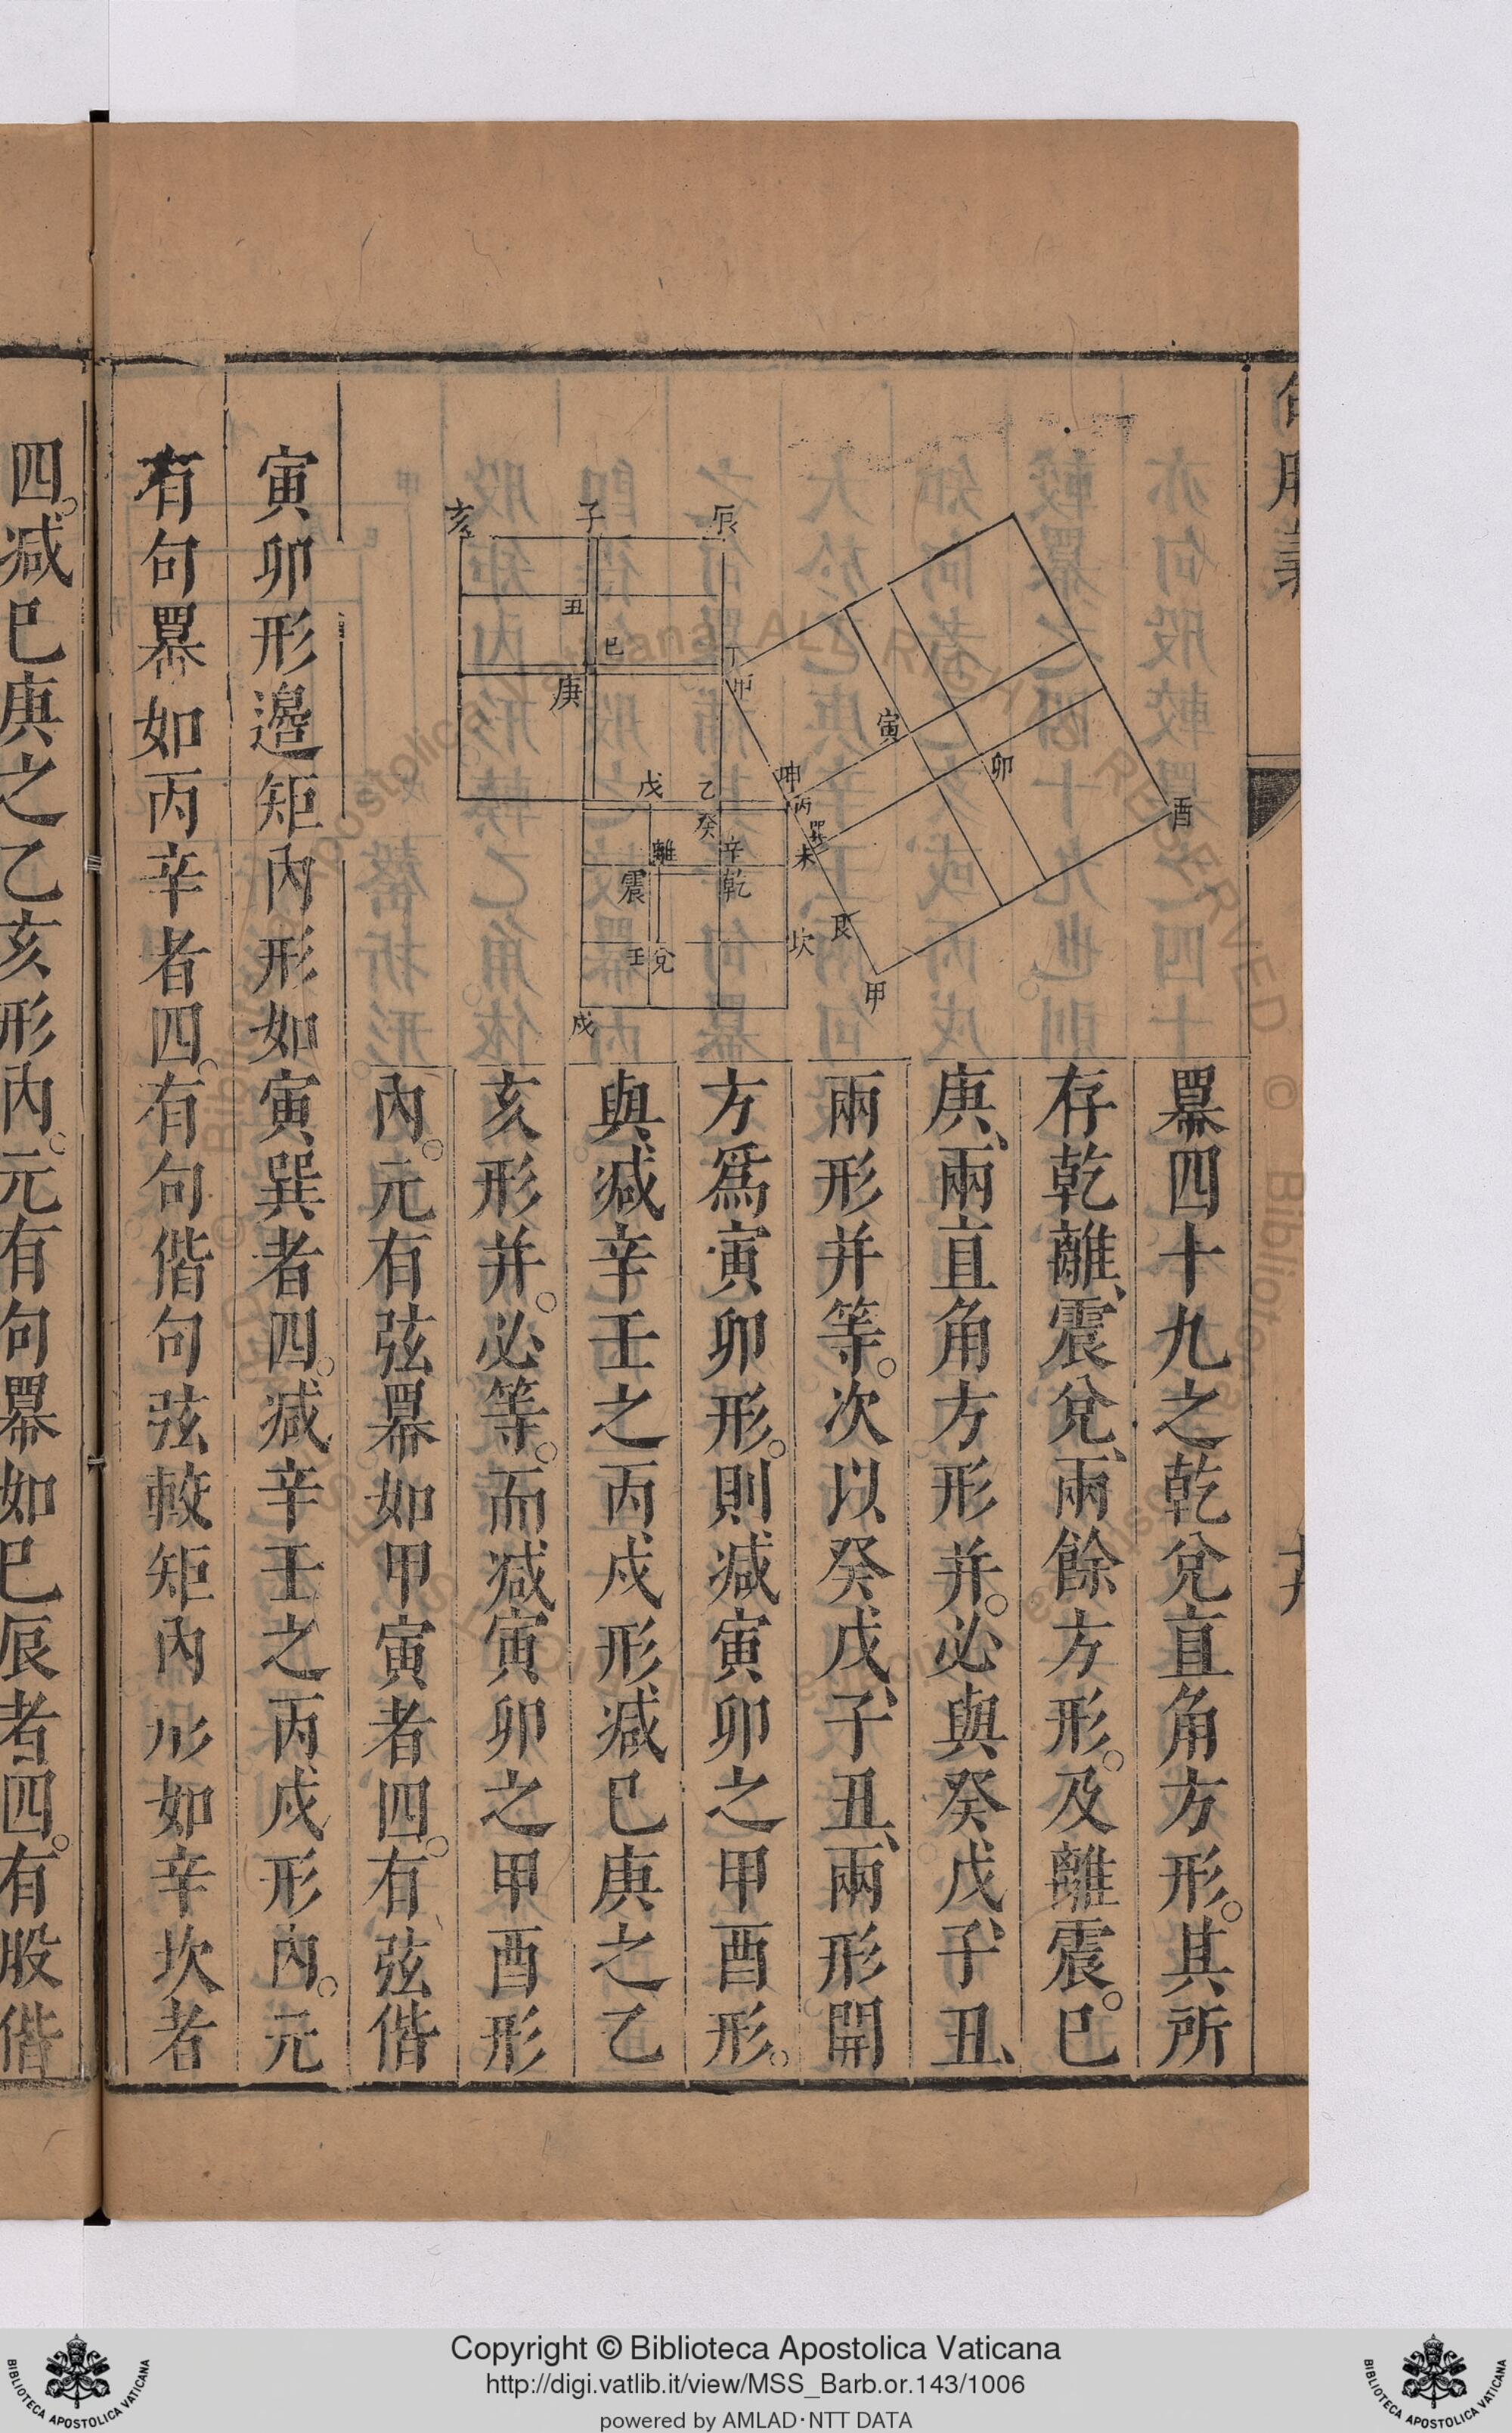 冪四十九之乾兌直角方形。其所
存乾離、震兌、兩餘方形。及離震。巳
庚、兩直角方形并。必與癸戊、子丑、
兩形并等。次以癸戊、子丑、兩形開
方為寅卯形。則减寅卯之甲酉形。
與减辛壬之丙戌形减巳庚之乙
亥形并。必等。而减寅卯之甲酉形
內。元有弦冪如甲寅者四。有弦偕
寅卯形邊矩內形如寅巽者四。减辛壬之丙戌形內。元
有句冪如丙辛者四。有句偕句弦較矩內形如辛坎者
四。减巳庚之乙亥形內。元有句冪如巳辰者四。有股偕
亥
子
辰
丑
巳
丁
庚
戊
乙
癸
坤
丙
巽
未
離
辛
震
乾
艮
坎
壬
兌
戌
甲
寅
卯
酉
Copyright © Biblioteca Apostolica Vaticana
http://digi.vatlib.it/view/MSS_Barb.or.143/1006
powered by AMLAD·NTT DATA
BIBLIOTECA APOSTOLICA VATICANA
BIBLIOTECA APOSTOLICA VATICANA